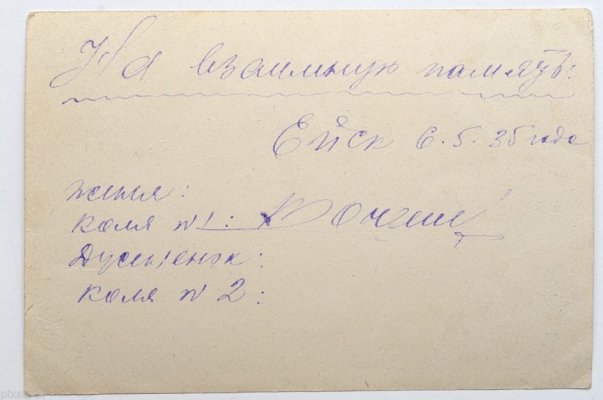 На взаимную память:
Ейск 6.5.35 года
женя:
коля №1:
Дусиненок:
коля № 2: